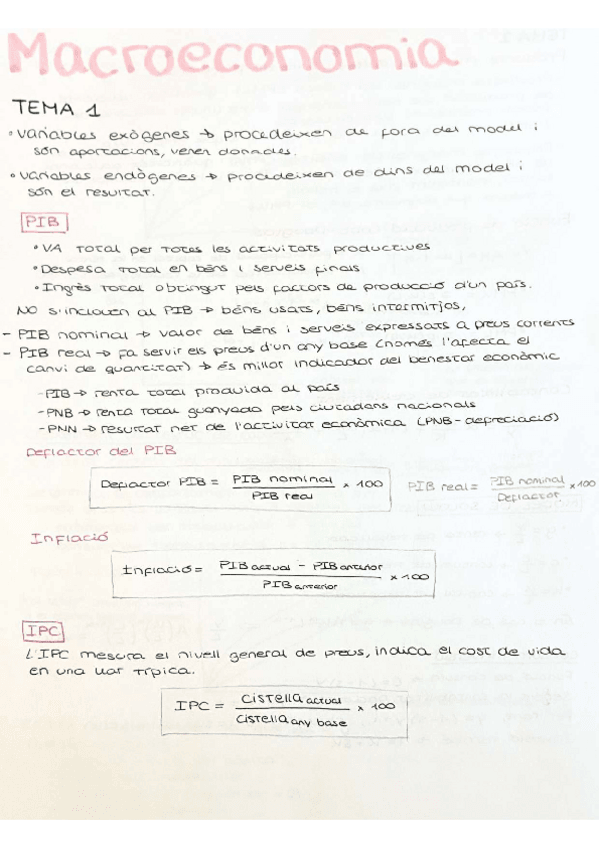 Macroeconomia
TEMA 1
• Variables exògenes → procedeixen de fora del model i
són aportacions, venen donades.
• Variables endògenes → procedeixen de dins del model i
són el resultat.
PIB
• VA total per totes les activitats productives
• Despesa total en béns i serveis finals
• Ingrès total obtingut pels factors de producció d'un país.
NO s'inclouen al PIB → béns usats, béns intermitjos,
- PIB nominal → valor de béns i serveis expressats a preus corrents
- PIB real → fa servir els preus d'un any base (només l'afecta el
canvi de quantitat) → és millor indicador del benestar econòmic
- PIB → renta total produida al país
- PNB → renta total guanyada pels ciutadans nacionals
- PNN → resultat net de l'activitat econòmica (PNB - depreciació)
Deflactor del PIB
Deflactor PIB = PIB nominal / PIB real × 100 PIB real = PIB nominal / Deflactor × 100
Inflació
Inflació = PIB actual - PIB anterior / PIB anterior × 100
IPC
L'IPC mesura el nivell general de preus, indica el cost de vida
en una llar típica.
IPC = Cistella actual / Cistella any base × 100